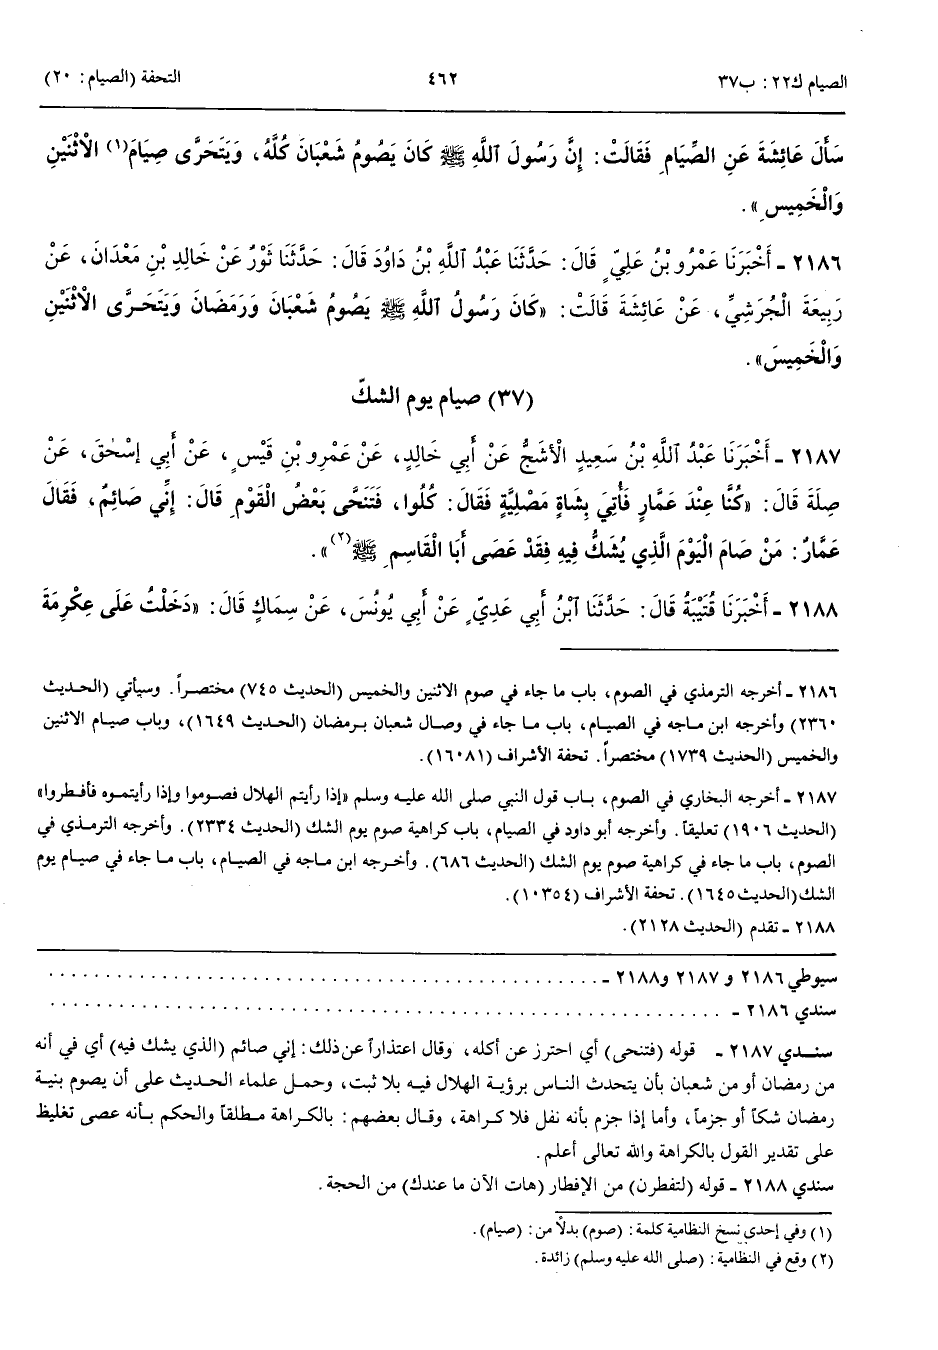 الصيام ك٢٢: ب٣٧ ٤٦٢ التحفة (الصيام: ٢٠)
سَأَلَ عَائِشَةَ عَنِ الصِّيَامِ فَقَالَتْ: إِنَّ رَسُولَ ٱللَّهِ ﷺ كَانَ يَصُومُ شَعْبَانَ كُلَّهُ، وَيَتَحَرَّى صِيَامَ(١) الْاثْنَيْنِ
وَالْخَمِيسِ».
٢١٨٦ ـ أَخْبَرَنَا عَمْرُو بْنُ عَلِيٍّ قَالَ: حَدَّثَنَا عَبْدُ ٱللَّهِ بْنُ دَاوُدَ قَالَ: حَدَّثَنَا ثَوْرٌ عَنْ خَالِدِ بْنِ مَعْدَانَ، عَنْ
رَبِيعَةَ الْجُرَشِيِّ، عَنْ عَائِشَةَ قَالَتْ: «كَانَ رَسُولُ ٱللَّهِ ﷺ يَصُومُ شَعْبَانَ وَرَمَضَانَ وَيَتَحَرَّى الْاثْنَيْنِ
وَالْخَمِيسَ».
(٣٧) صيام يوم الشكّ
٢١٨٧ ـ أَخْبَرَنَا عَبْدُ ٱللَّهِ بْنُ سَعِيدٍ الْأَشَجُّ عَنْ أَبِي خَالِدٍ، عَنْ عَمْرِو بْنِ قَيْسٍ، عَنْ أَبِي إِسْحٰقَ، عَنْ
صِلَةَ قَالَ: «كُنَّا عِنْدَ عَمَّارٍ فَأُتِيَ بِشَاةٍ مَصْلِيَّةٍ فَقَالَ: كُلُوا، فَتَنَحَّى بَعْضُ الْقَوْمِ قَالَ: إِنِّي صَائِمٌ، فَقَالَ
عَمَّارٌ: مَنْ صَامَ الْيَوْمَ الَّذِي يُشَكُّ فِيهِ فَقَدْ عَصَى أَبَا الْقَاسِمِ ﷺ(٢)».
٢١٨٨ ـ أَخْبَرَنَا قُتَيْبَةُ قَالَ: حَدَّثَنَا ٱبْنُ أَبِي عَدِيٍّ عَنْ أَبِي يُونُسَ، عَنْ سِمَاكٍ قَالَ: «دَخَلْتُ عَلَى عِكْرِمَةَ
٢١٨٦ ـ أخرجه الترمذي في الصوم، باب ما جاء في صوم الاثنين والخميس (الحديث ٧٤٥) مختصراً. وسيأتي (الحديث
٢٣٦٠) وأخرجه ابن ماجه في الصيام، باب ما جاء في وصال شعبان برمضان (الحديث ١٦٤٩)، وباب صيام الاثنين
والخميس (الحديث ١٧٣٩) مختصراً. تحفة الأشراف (١٦٠٨١).
٢١٨٧ ـ أخرجه البخاري في الصوم، باب قول النبي صلى الله عليه وسلم «إذا رأيتم الهلال فصوموا وإذا رأيتموه فأفطروا»
(الحديث ١٩٠٦) تعليقاً. وأخرجه أبو داود في الصيام، باب كراهية صوم يوم الشك (الحديث ٢٣٣٤). وأخرجه الترمذي في
الصوم، باب ما جاء في كراهية صوم يوم الشك (الحديث ٦٨٦). وأخرجه ابن ماجه في الصيام، باب ما جاء في صيام يوم
الشك (الحديث ١٦٤٥). تحفة الأشراف (١٠٣٥٤).
٢١٨٨ ـ تقدم (الحديث ٢١٢٨).
سيوطي ٢١٨٦ و ٢١٨٧ و٢١٨٨ ـ . . . . . . . . . . . . . . . . . . . . . . . . . . . . . .
سندي ٢١٨٦ ـ . . . . . . . . . . . . . . . . . . . . . . . . . . . . . .
سندي ٢١٨٧ ـ قوله (فتنحى) أي احترز عن أكله، وقال اعتذاراً عن ذلك: إني صائم (الذي يشك فيه) أي في أنه
من رمضان أو من شعبان بأن يتحدث الناس برؤية الهلال فيه بلا ثبت، وحمل علماء الحديث على أن يصوم بنية
رمضان شكاً أو جزماً، وأما إذا جزم بأنه نفل فلا كراهة، وقال بعضهم: بالكراهة مطلقاً والحكم بأنه عصى تغليظ
على تقدير القول بالكراهة والله تعالى أعلم.
سندي ٢١٨٨ ـ قوله (لتفطرن) من الإفطار (هات الآن ما عندك) من الحجة.
(١) وفي إحدى نسخ النظامية كلمة: (صوم) بدلاً من: (صيام).
(٢) وقع في النظامية: (صلى الله عليه وسلم) زائدة.